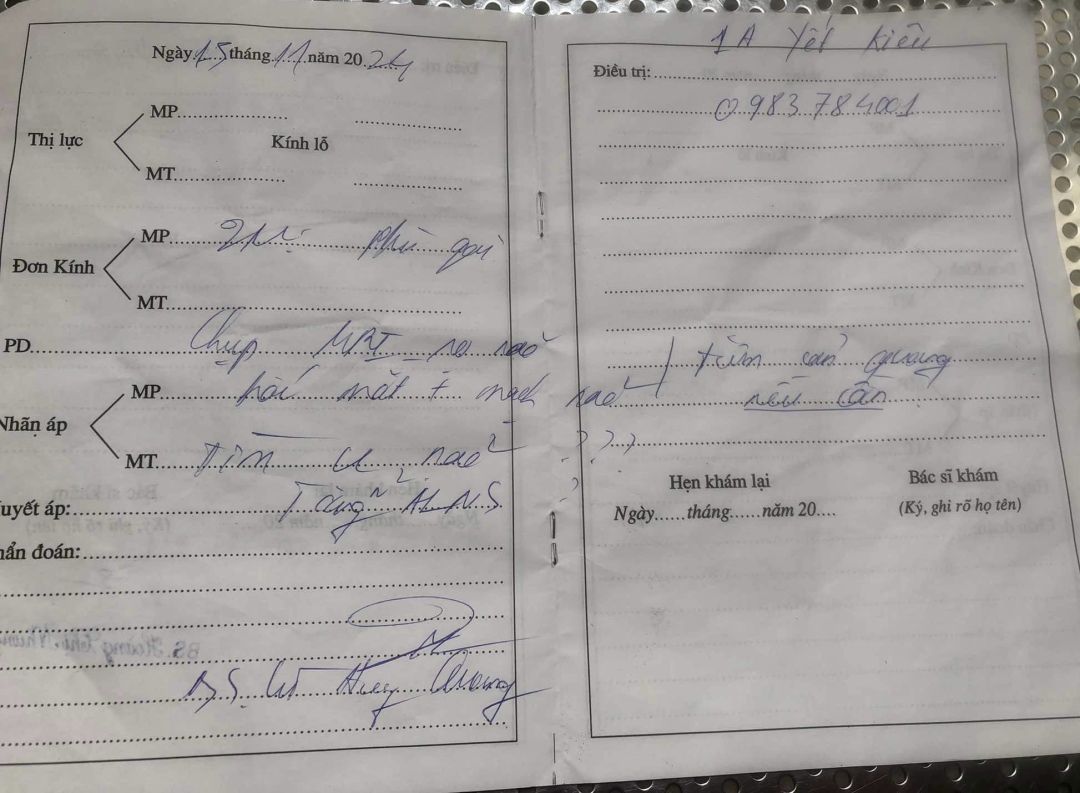 Ngày 15 tháng 11 năm 20 24
Thị lực
MP
MT
Kính lỗ
Đơn Kính
MP 2M: phù gai
MT
PD Chụp MRI sọ não
Nhãn áp
MP hốc mắt + mạch não
MT tìm u não ???
uyết áp: Tăng ALNS ?
hẩn đoán:
BS. Huy Quang
1A Yết Kiêu
Điều trị:
0983784001
tiêm cản quang
nếu cần
Hẹn khám lại
Ngày......tháng......năm 20....
Bác sĩ khám
(Ký, ghi rõ họ tên)